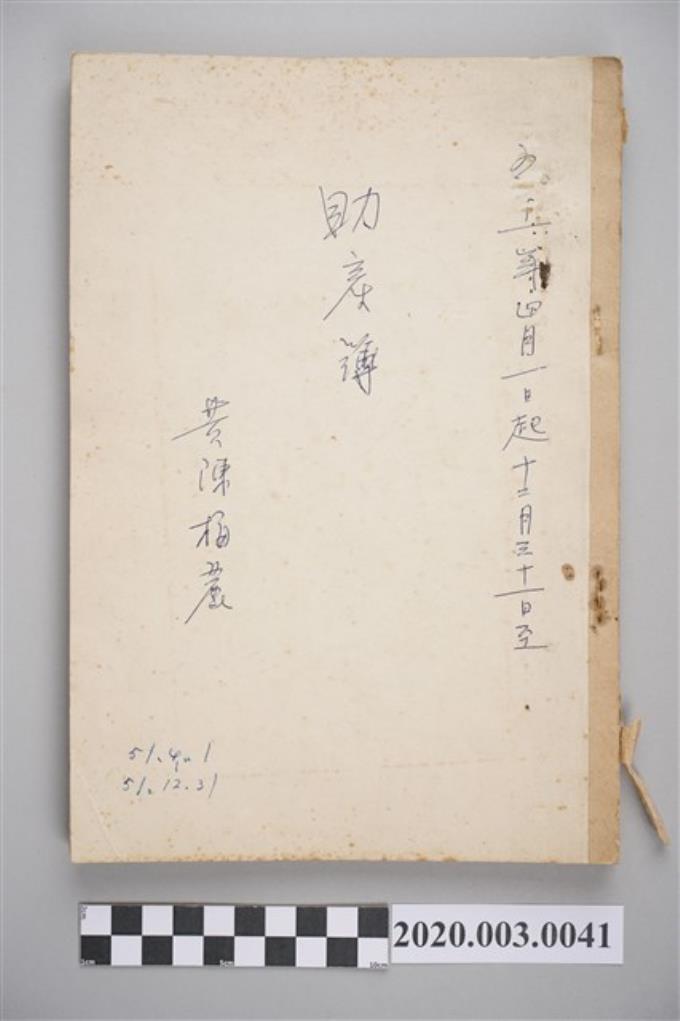 五十一年四月一日起十二月三十一日至
助産簿
黄陳梅麗
51.4.1
51.12.31
0cm
1cm
5cm
10cm
2020.003.0041